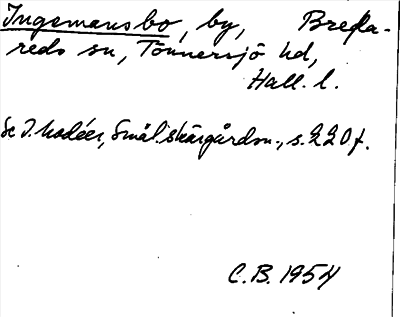 Ingemansbo, by, Breda-
reds sn, Tönnersjö hd,
Hall. l.
Se I. Modéer, Smål. skärgårdsn., s. 220 f.
C.B. 1954